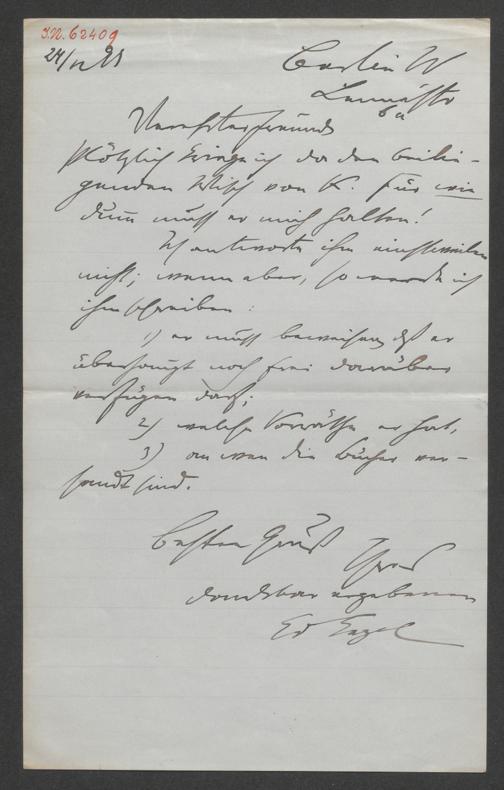 I.N. 62409
24/12 98
Berlin W
Lennéstr
6a
Verehrter Freund!
Plötzlich kriege ich da den beilie-
genden Wisch von K. Für wie
dumm muß er mich halten!
Ich antworte ihm einstweilen
nicht; wenn aber, so werde ich
ihm schreiben:
1) er muß beweisen, daß er
überhaupt noch frei darüber
verfügen darf;
2) welche Vorräthe er hat,
3) an wen die Bücher ver-
sandt sind.
Besten Gruß
Ihres
dankbar ergebenen
Ed Engel